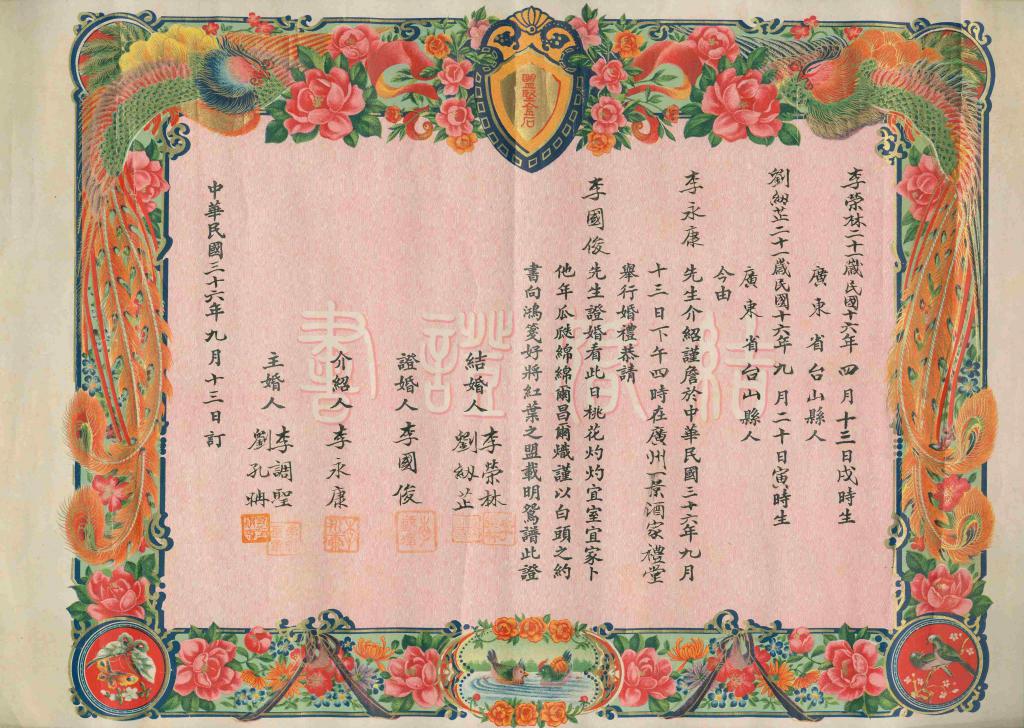 盟堅金石
結婚證書
李榮林二十一歲民國十六年四月十三日戌時生
廣東省台山縣人
劉級芷二十一歲民國十六年九月二十日寅時生
廣東省台山縣人
今由
李永康先生介紹謹詹於中華民國三十六年九月
十三日下午四時在廣州一景酒家禮堂
舉行婚禮恭請
李國俊先生證婚看此日桃花灼灼宜室宜家卜
他年瓜瓞綿綿爾昌爾熾謹以白頭之約
書向鴻箋好將紅葉之盟載明鴛譜此證
結婚人 李榮林
劉級芷
證婚人 李國俊
介紹人 李永康
主婚人 李調聖
劉孔
中華民國三十六年九月十三日訂